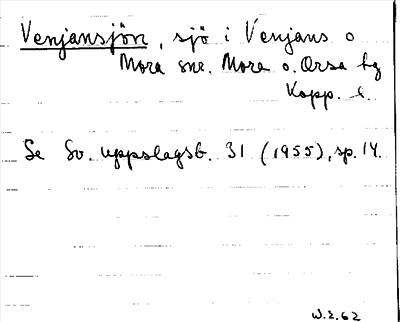 Venjansjön, sjö i Venjans o
Mora snr. Mora o. Orsa tg
Kopp. l.
Se Sv. uppslagsb. 31 (1955), sp. 14.
W.E.62